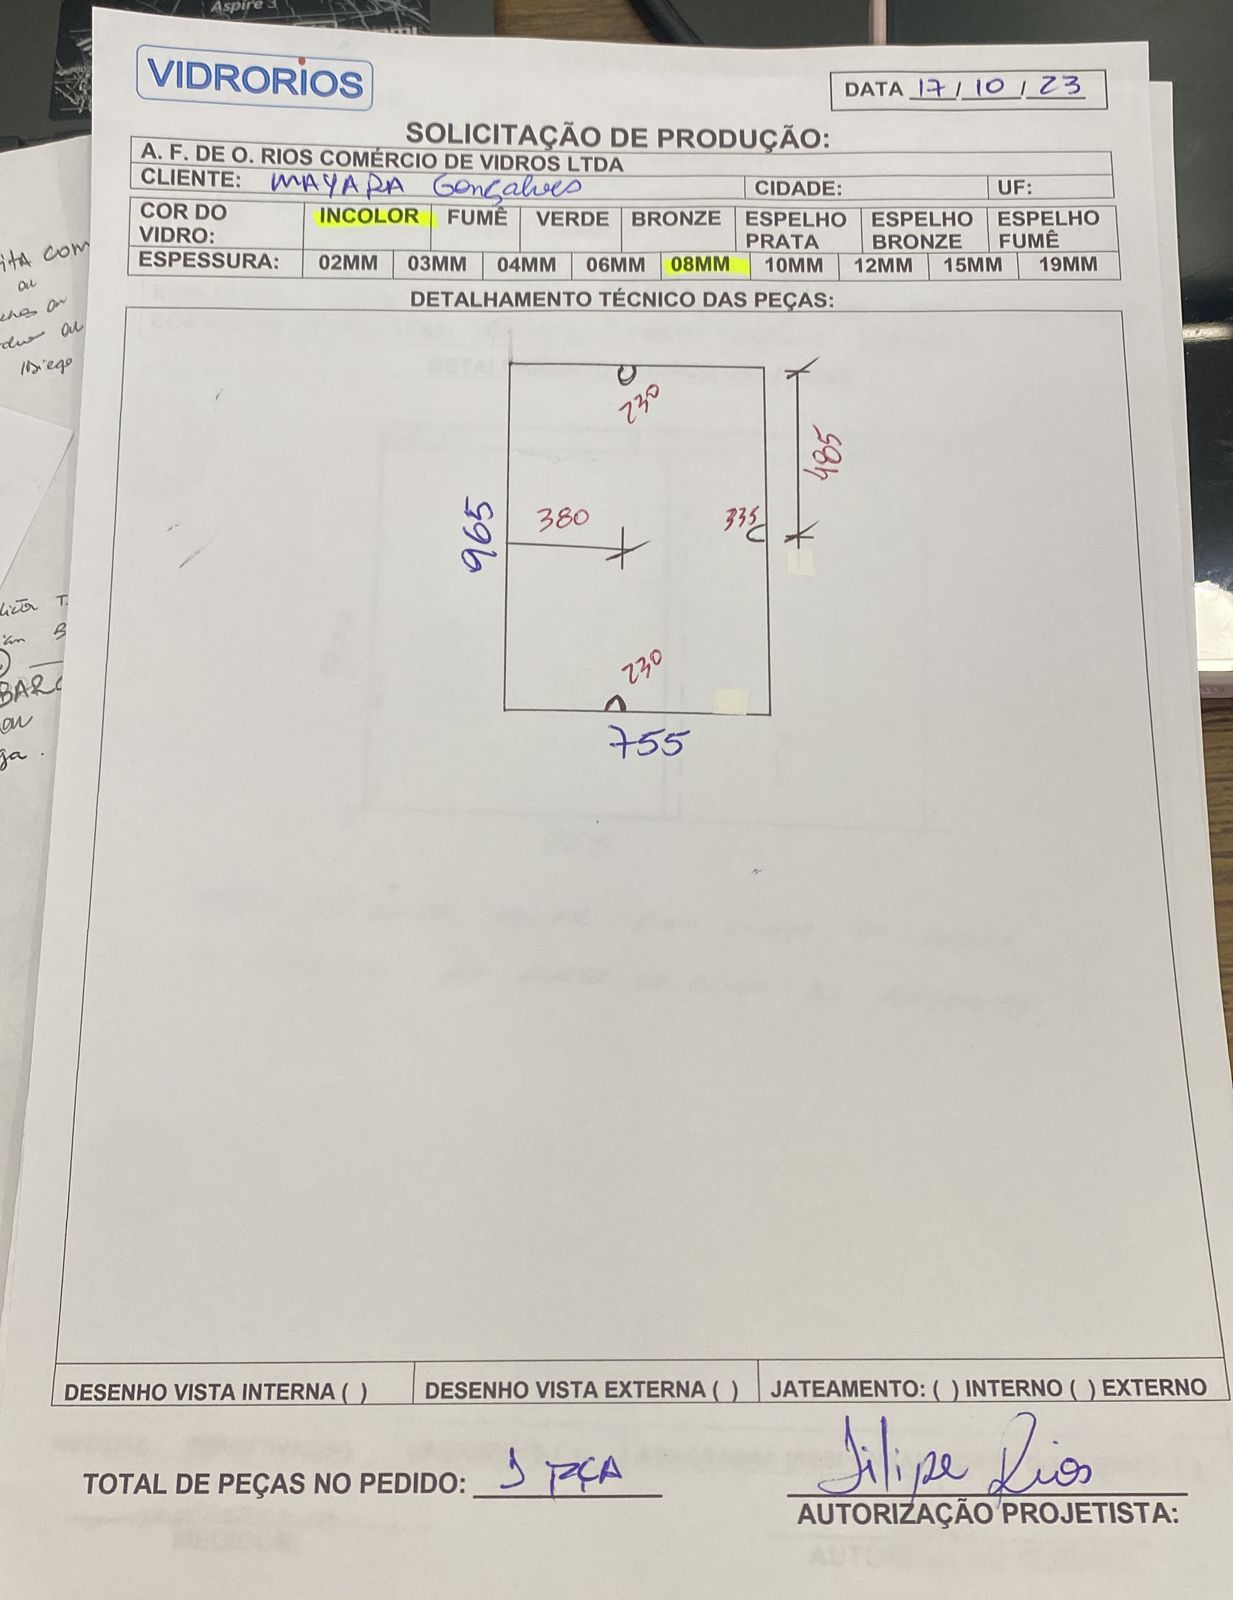 Aspire 3
VIDRORIOS
DATA 17 / 10 / 23
SOLICITAÇÃO DE PRODUÇÃO:
A. F. DE O. RIOS COMÉRCIO DE VIDROS LTDA
CLIENTE: MAYARA Gonçalves CIDADE: UF:
COR DO VIDRO: INCOLOR FUMÊ VERDE BRONZE ESPELHO PRATA ESPELHO BRONZE ESPELHO FUMÊ
ESPESSURA: 02MM 03MM 04MM 06MM 08MM 10MM 12MM 15MM 19MM
DETALHAMENTO TÉCNICO DAS PEÇAS:
230
485
965
380
335
230
755
COM
ou
ou
Diego
DESENHO VISTA INTERNA ( ) DESENHO VISTA EXTERNA ( ) JATEAMENTO: ( ) INTERNO ( ) EXTERNO
TOTAL DE PEÇAS NO PEDIDO: 1 PÇA
Filipe Rios
AUTORIZAÇÃO PROJETISTA: